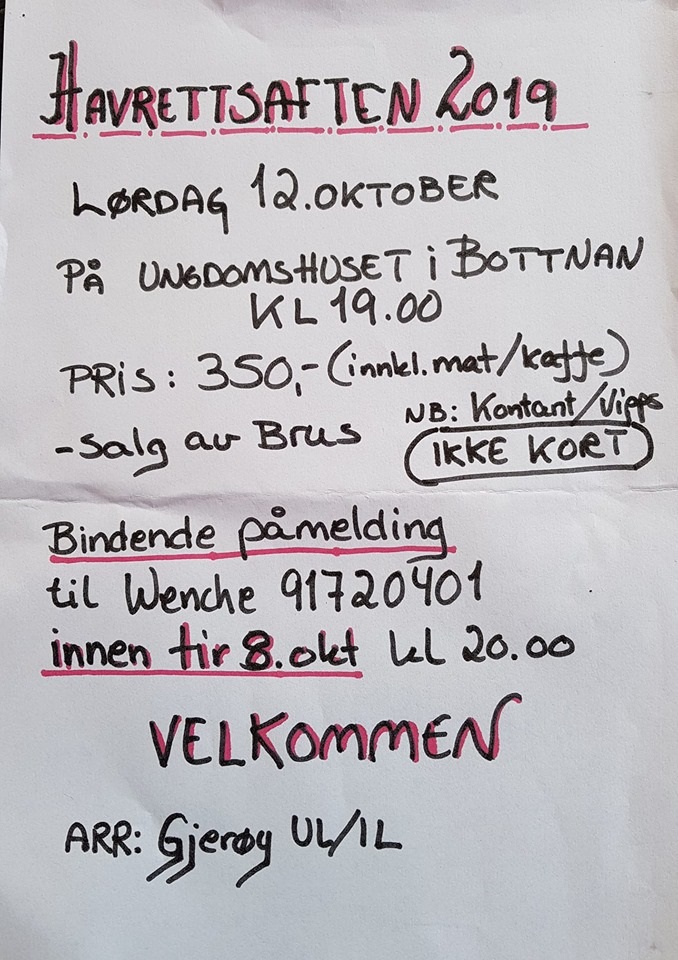 HAVRETTSAFTEN 2019
LØRDAG 12.OKTOBER
PÅ UNGDOMSHUSET i BOTTNAN
KL 19.00
PRIS: 350,- (innkl.mat/kaffe)
NB: Kontant/Vipps
-Salg av Brus
IKKE KORT
Bindende påmelding
til Wenche 91720401
innen tir 8.okt kl 20.00
VELKOMMEN
ARR: Gjerøy UL/IL